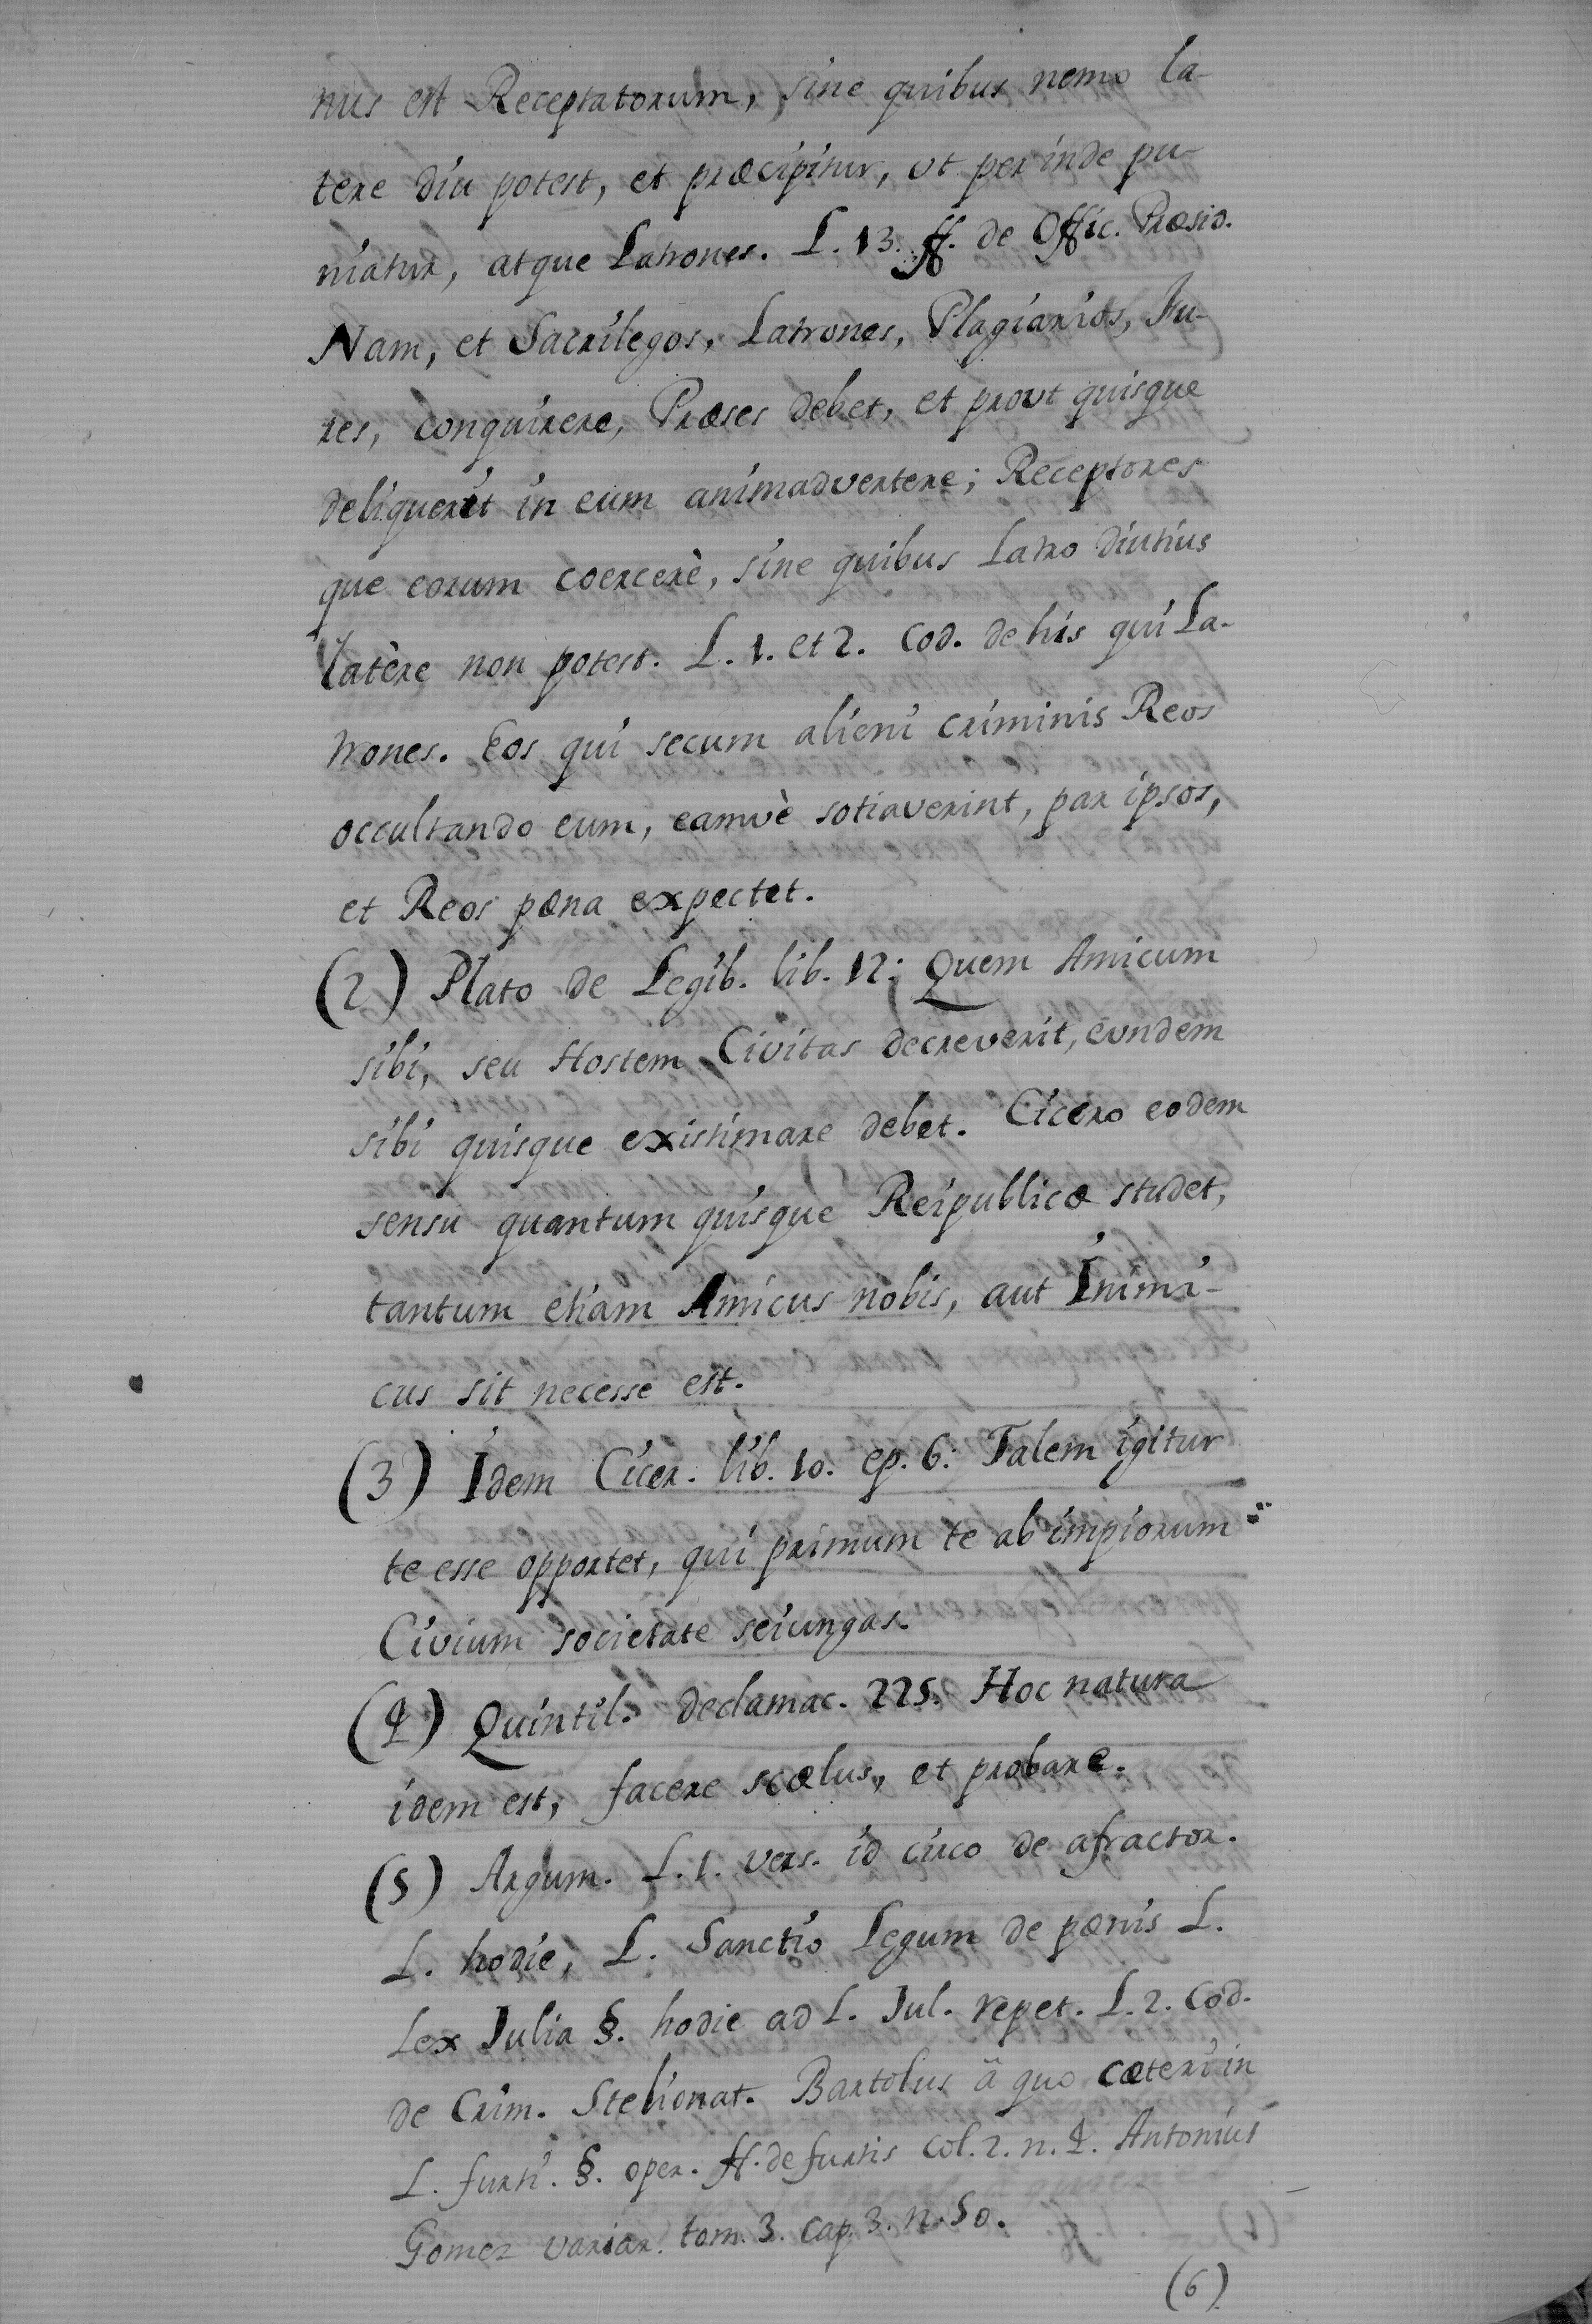 nus est Receptatorum, sine quibus nemo la-
tere diu potest, et præcipitur, ut perinde pu-
niatur, atque Latrones. L. 13. ff. de Offic. Præsid.
Nam, et Sacrilegos, Latrones, Plagiarios, Fu-
res, conquirere, Præses debet, et prout quisque
deliquerit in eum animadvertere; Receptores
que eorum coercerè, sine quibus Latro diutius
latère non potest. L. 1. et 2. Cod. de his qui La-
trones. Eos qui secum alieni criminis Reos
occultando eum, eamvè sotiaverint, par ipsos,
et Reos pœna expectet.
(2) Plato de Legib. lib. 12: Quem Amicum
sibi, seu Hostem Civitas decreverit, eundem
sibi quisque existimare debet. Cicero eodem
sensu quantum quisque Reipublicæ studet,
tantum etiam Amicus nobis, aut Inimi-
cus sit necesse est.
(3) Idem Cicer. lib. 10. ep. 6: Talem igitur
te esse opportet, qui primum te ab impiorum
Civium societate seiungas.
(4) Quintil. declamac. 225. Hoc natura
idem est, facere scælus, et probare.
(5) Argum. L. 1. vers. id circo de afractor.
L. hodie, L. Sanctio Legum de pœnis L.
Lex Julia §. hodie ad L. Jul. repet. L. 2. Cod.
de Crim. Stelionat. Bartolus â quo cæteri in
L. furti. §. oper. ff. de furtis col. 2. n. 4. Antonius
Gomez variar. tom. 3. cap. 3. n. 50.
(6)